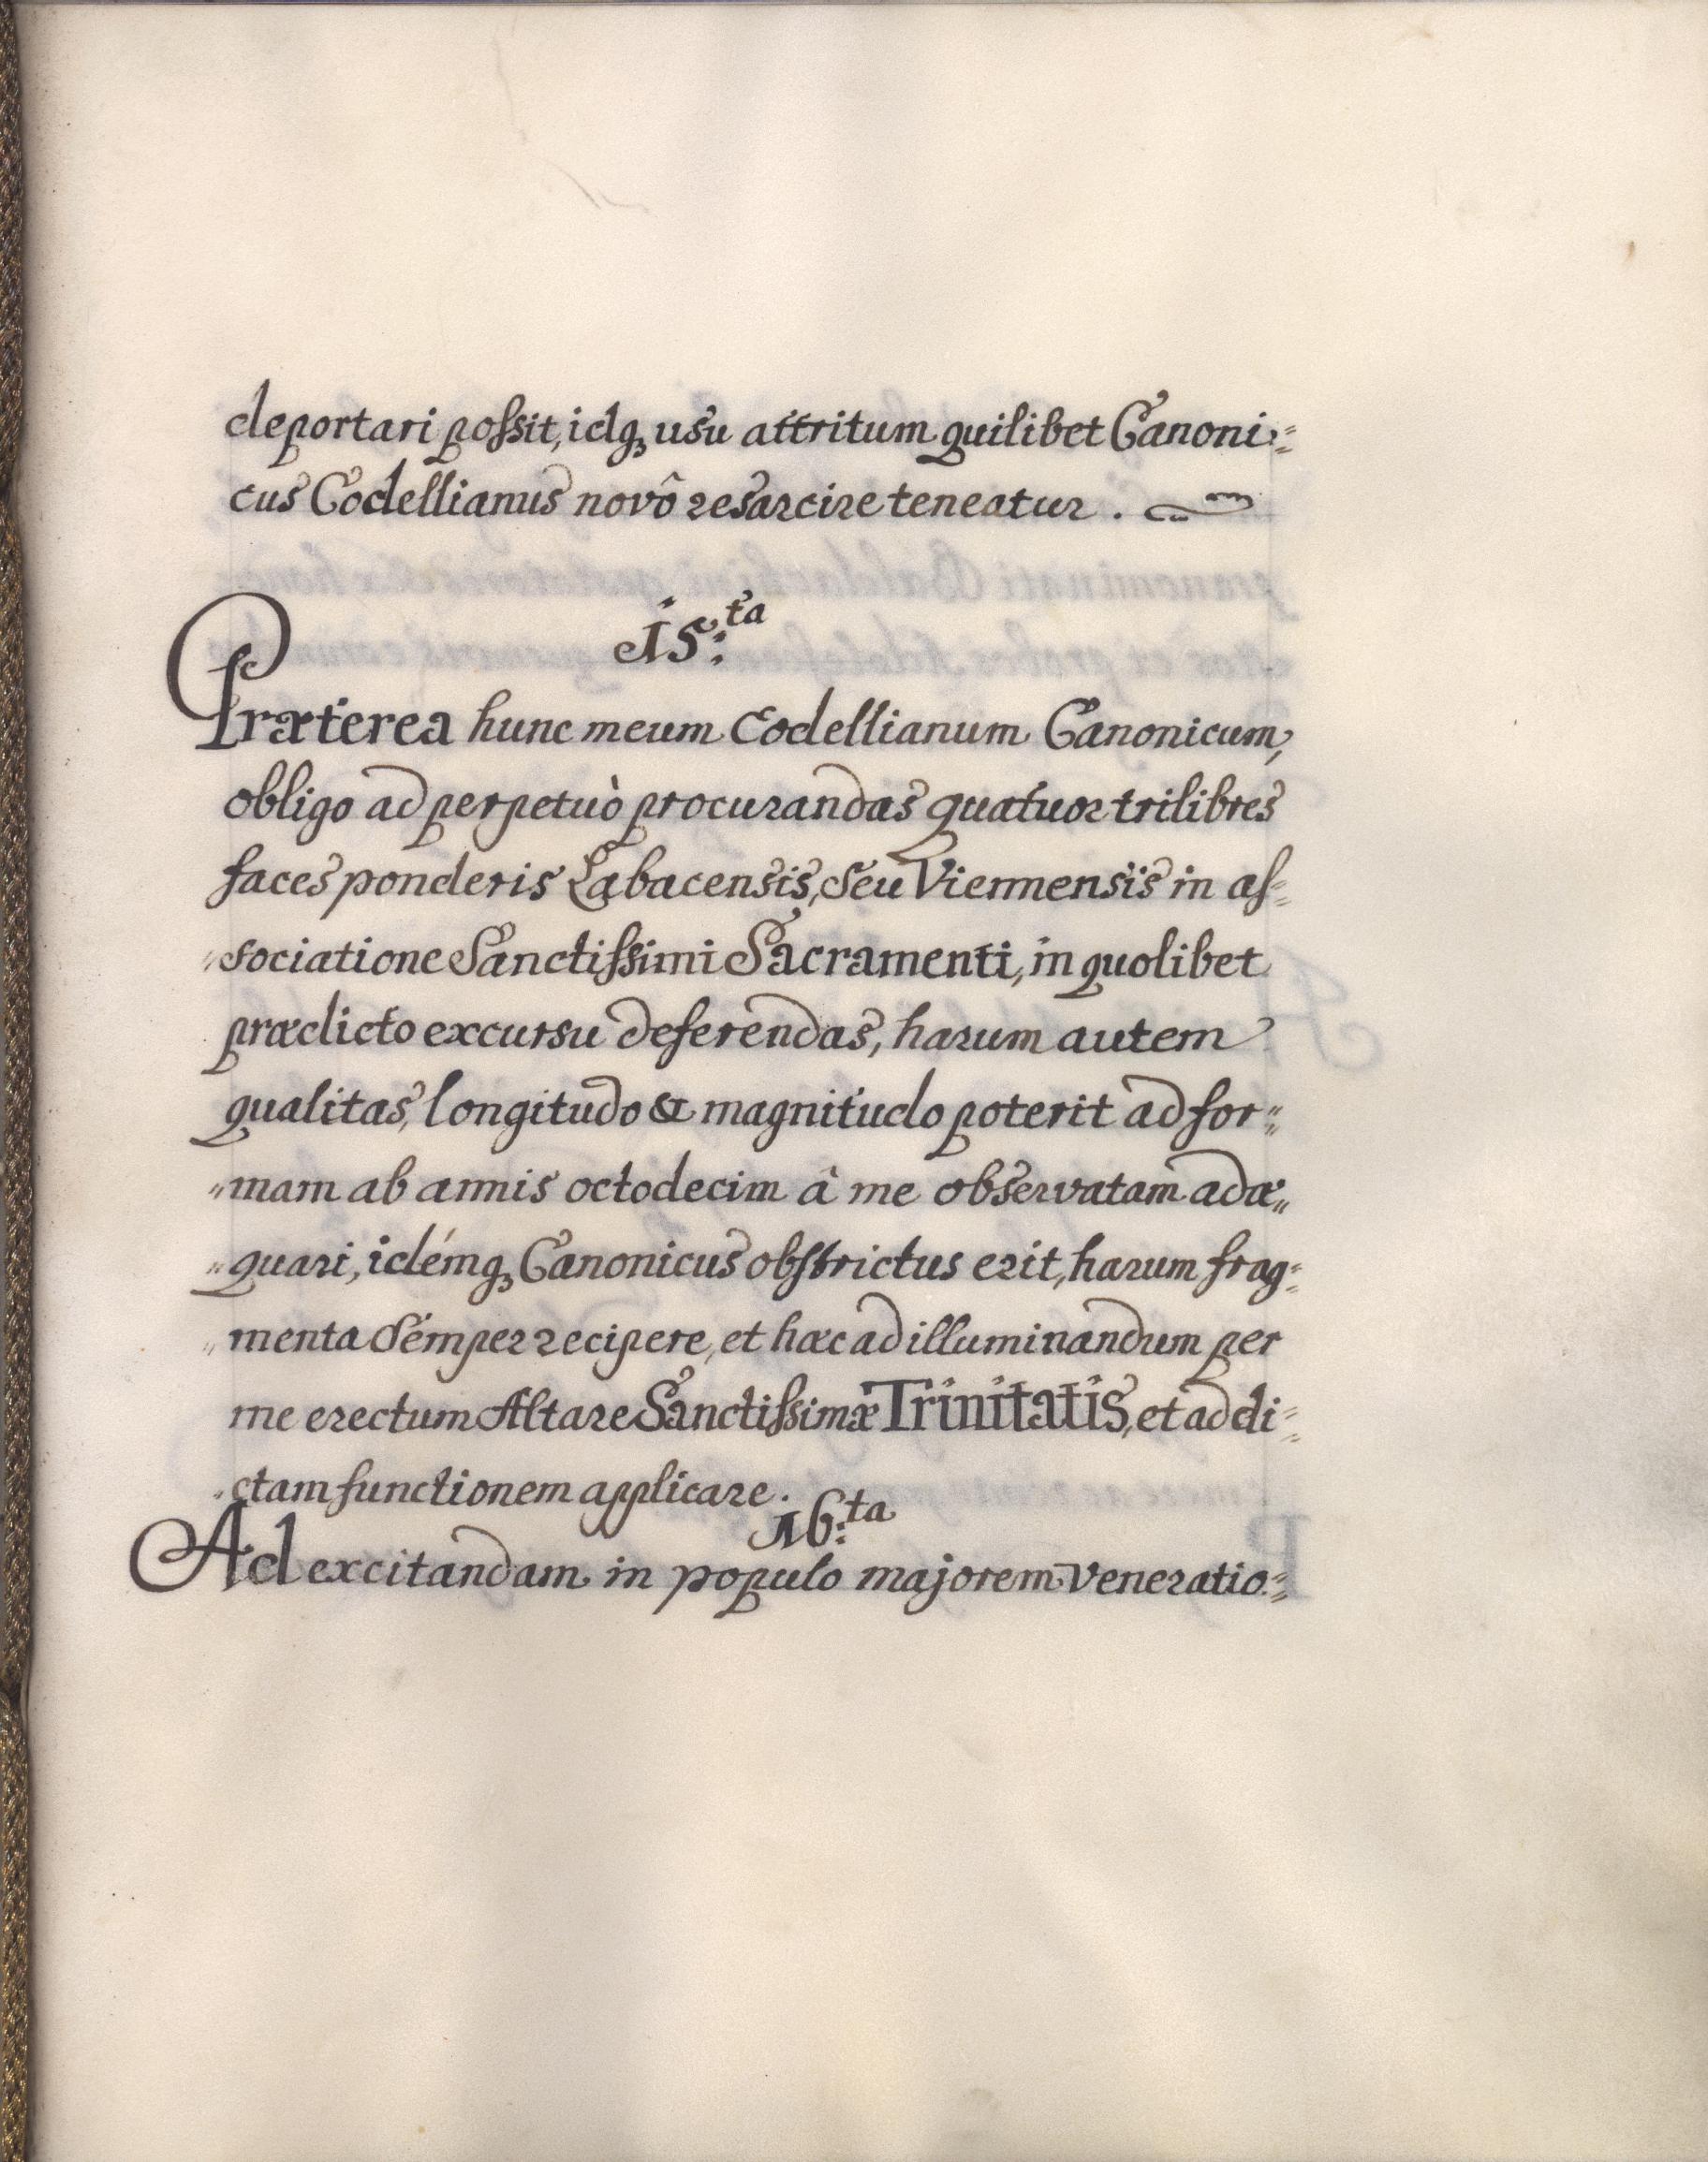 deportari poſsit, idq₃ usu attritum quilibet Canoni⸗
cus Codellianus novô resarcire teneatur.
15:ta
Præterea hunc meum Codellianum Canonicum,
obligo ad perpetuò procurandas quatuor trilibres
faces ponderis Labacensis, seu Viennensis in aſ⸗
sociatione Sanctiſsimi Sacramenti, in quolibet
prædicto excursu deferendas, harum autem
qualitas, longitudo & magnitudo poterit ad for⸗
mam ab annis octodecim â me observatam adæ⸗
quari, idémq₃ Canonicus obſtrictus erit, harum frag⸗
menta sémper recipere, et hæc ad illuminandum per
me erectum Altare Sanctiſsimæ Trinitatis, et ad di⸗
ctam functionem applicare.
16:ta
Ad excitandam in populo majorem veneratio⸗